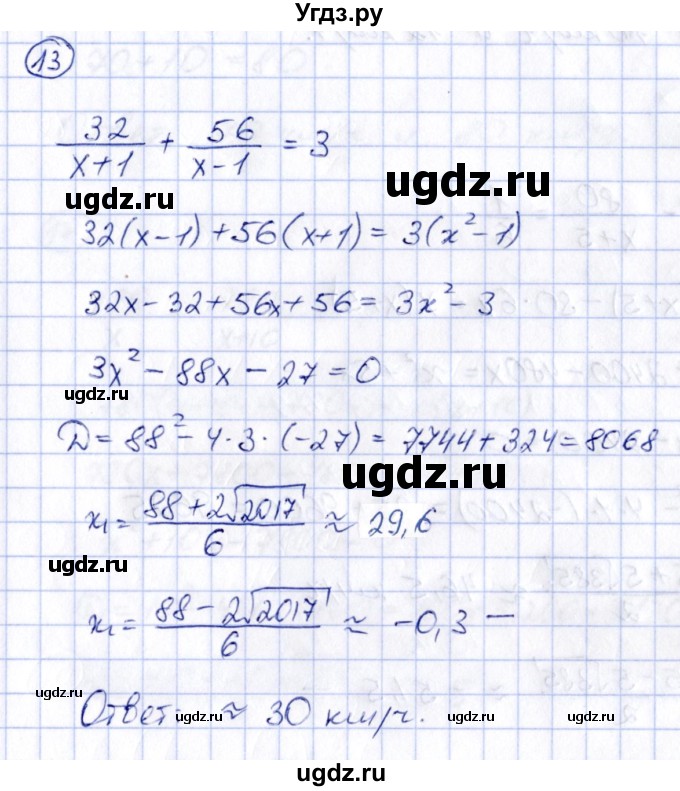 Угдз.ру
13
32/(x+1) + 56/(x-1) = 3
ugdz.ru
ugdz.ru
32(x-1)+56(x+1)=3(x²-1)
32x-32+56x+56=3x²-3
ugdz.ru
3x²-88x-27=0
ugdz.ru
D=88²-4·3·(-27)=7744+324=8068
ugdz.ru
x₁=(88+2√2017)/6≈29,6
ugdz.ru
x₁=(88-2√2017)/6≈-0,3 —
ugdz.ru
ugdz.ru
Ответ: ≈ 30 км/ч.
ugdz.ru ugdz.ru ugdz.ru
ugdz.ru